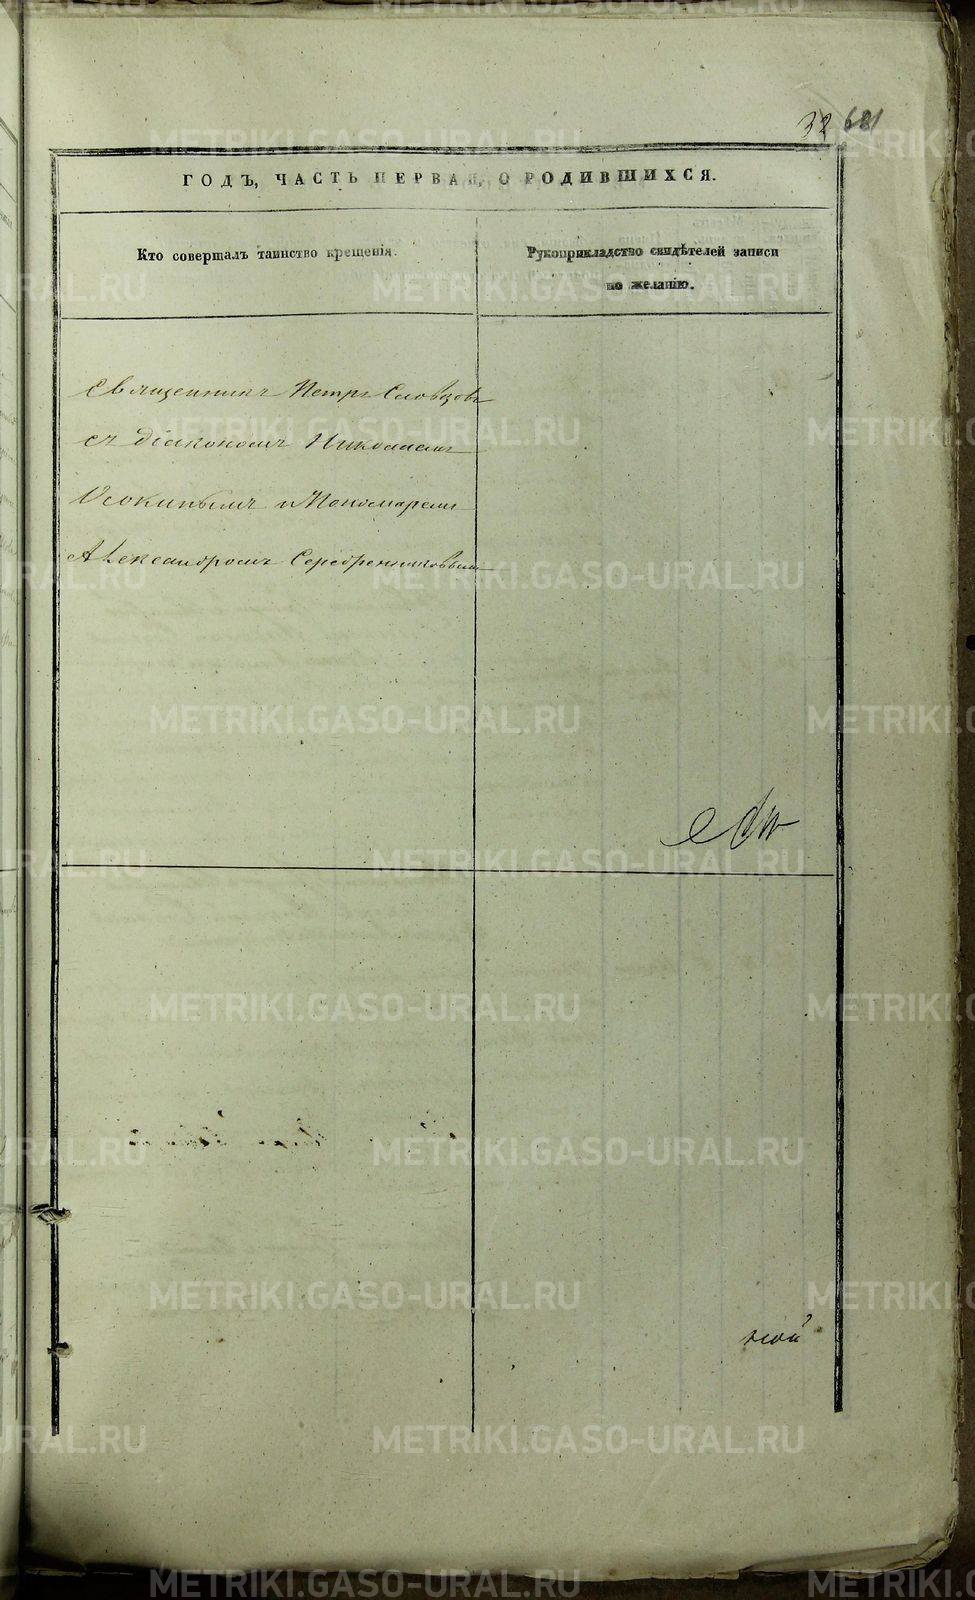 32 681
ГОДЪ, ЧАСТЬ ПЕРВАЯ, О РОДИВШИХСЯ.
Кто совершалъ таинство крещенія.
Рукоприкладство свидѣтелей записи
по желанію.
Священникъ Петръ Словцовъ
съ діакономъ Николаемъ
Осокинымъ и Пономаремъ
Александромъ Серебренниковымъ
METRIKI.GASO-URAL.RU